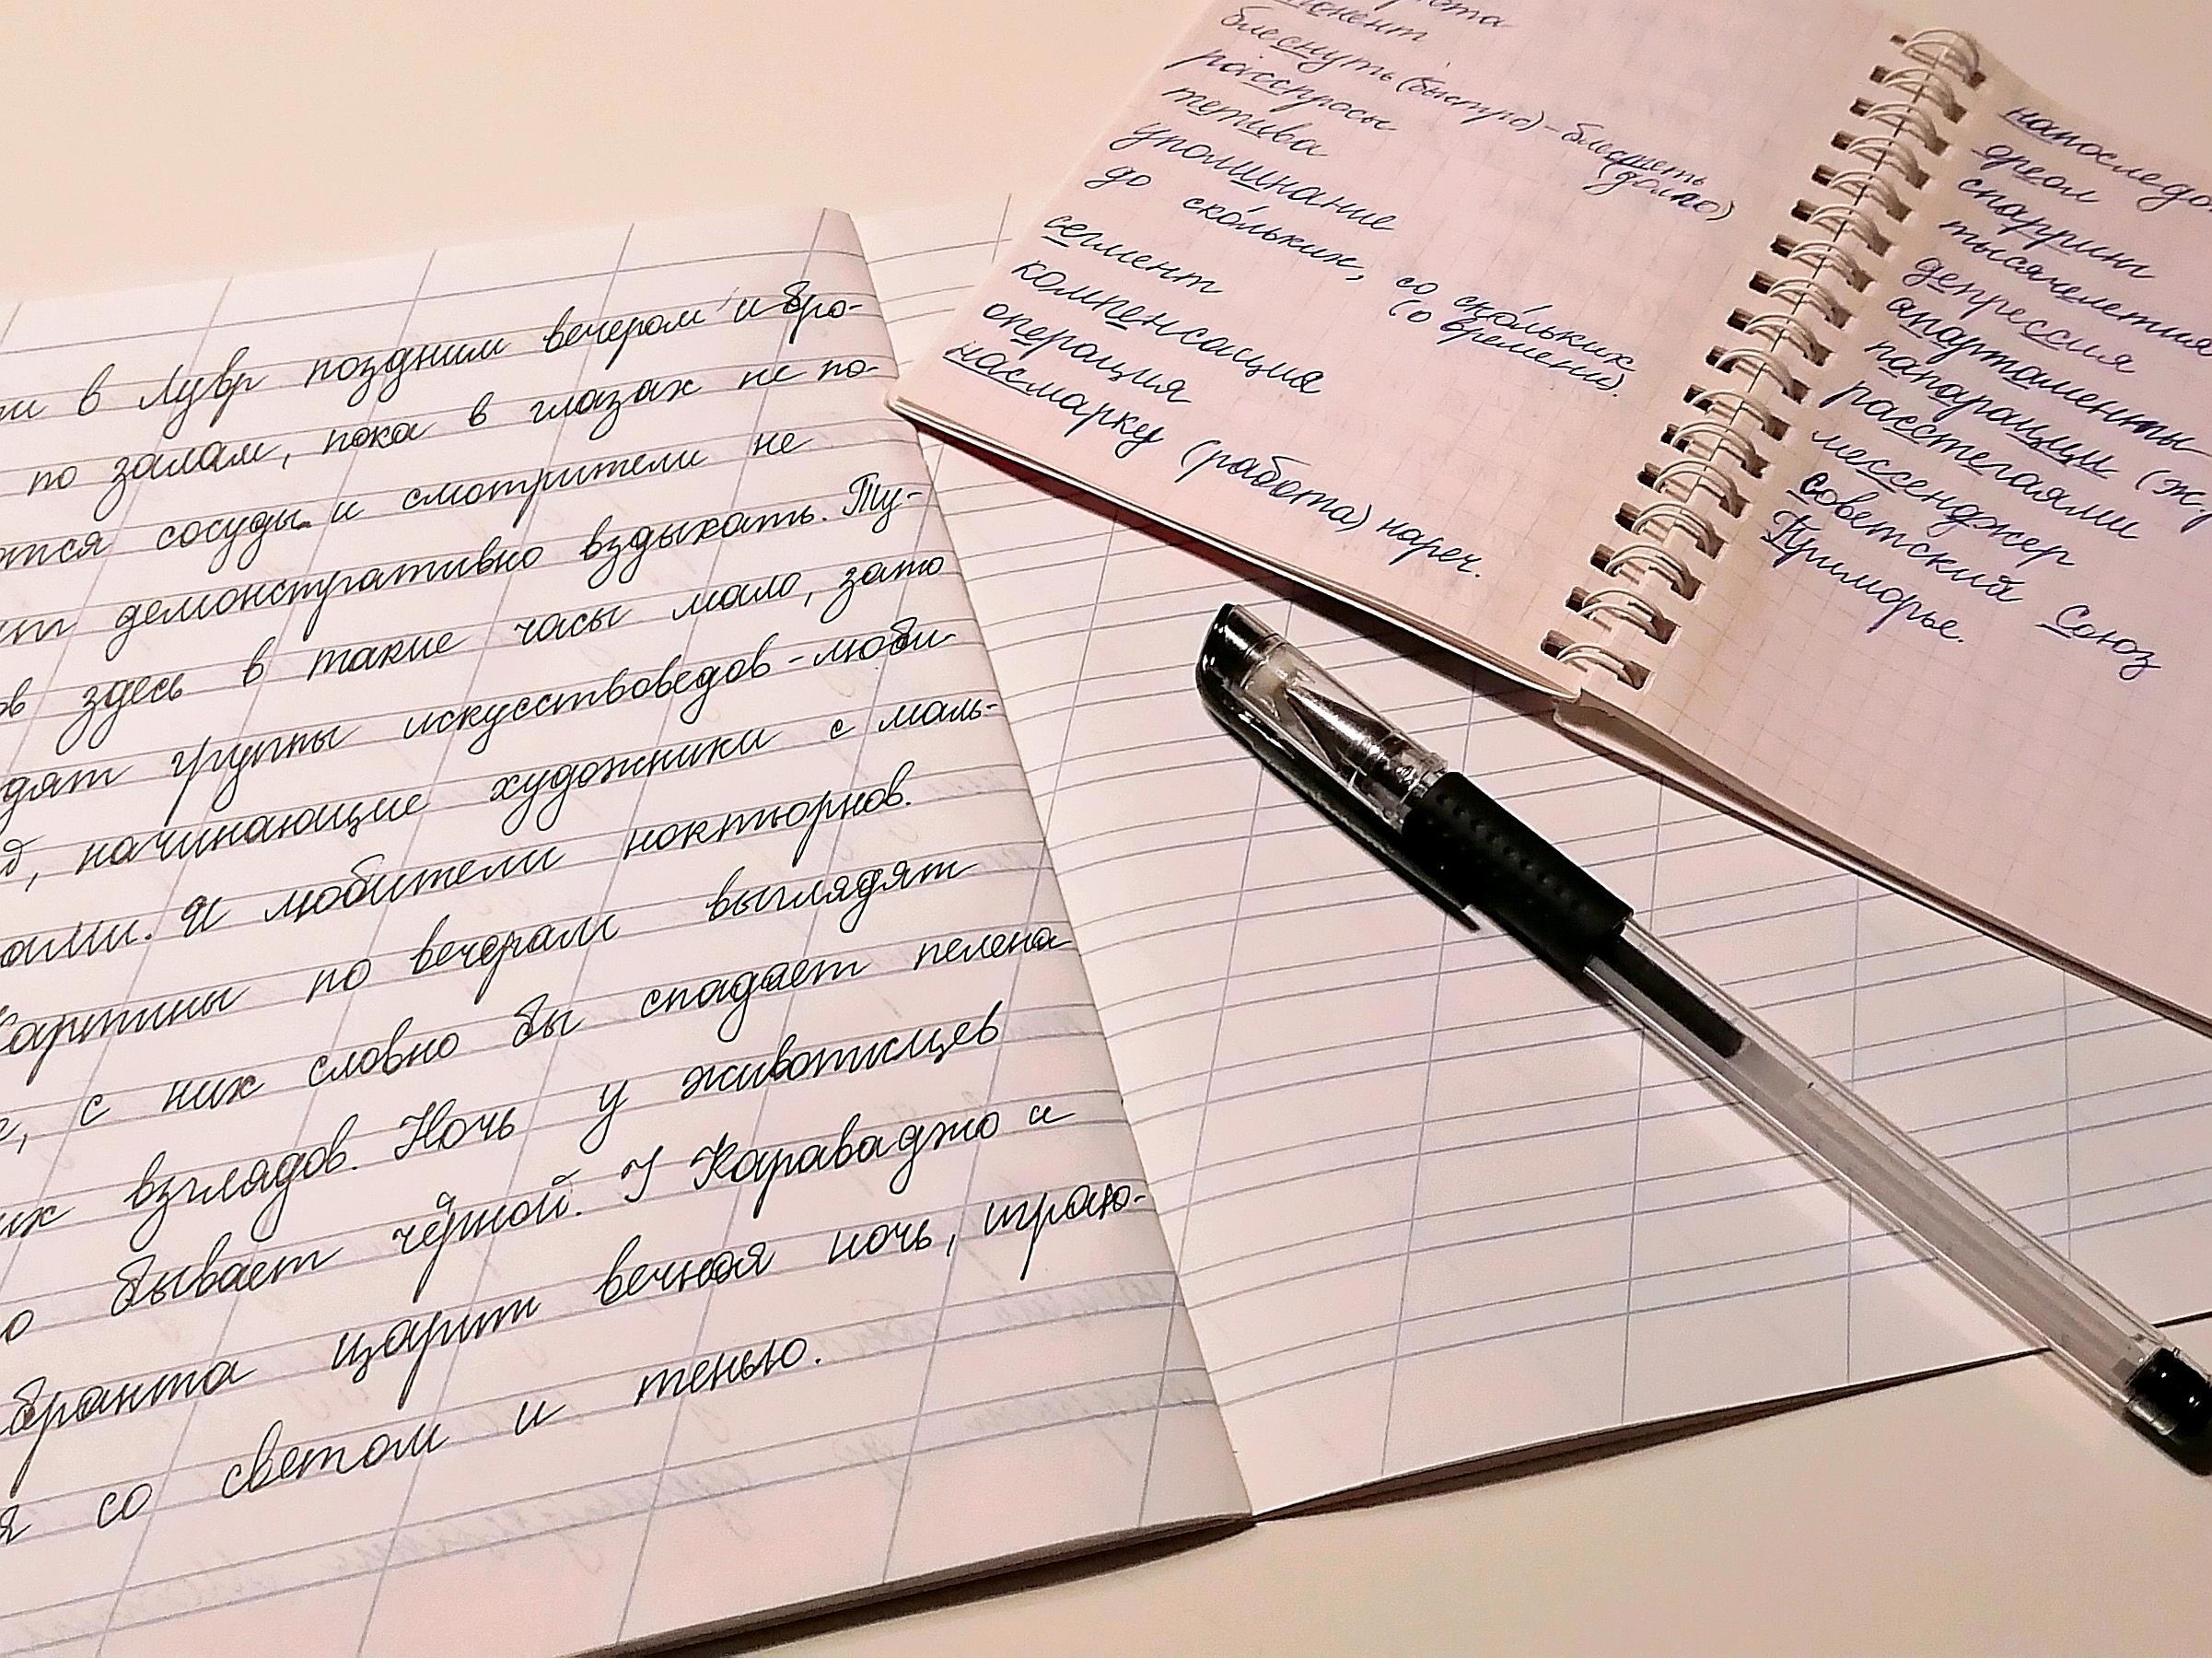 в Лувр поздним вечером и бро-
по залам, пока в глазах не по-
сосуды и смотрители не
демонстративно вздыхать. Ту-
здесь в такие часы мало, зато
группы искусствоведов-люби-
начинающие художники с моль-
И любители ноктюрнов.
Картины по вечерам выглядят
, с них словно бы спадает пелена
взглядов. Ночь у живописцев
бывает чёрной. У Караваджо и
бранта царит вечная ночь, играю-
я со светом и тенью.
блеснуть (быстро) - блестеть
(долго)
расспросы
тетива
упоминание
до ско́льких, со ско́льких
(о времени).
сегмент
компенсация
операция
насмарку (работа) нареч.
напоследо
ореол
спарринг
тысячелетия
депрессия
апартаменты
папарацци (ж,
расстегаями
мессенджер
Советский Союз
Приморье.